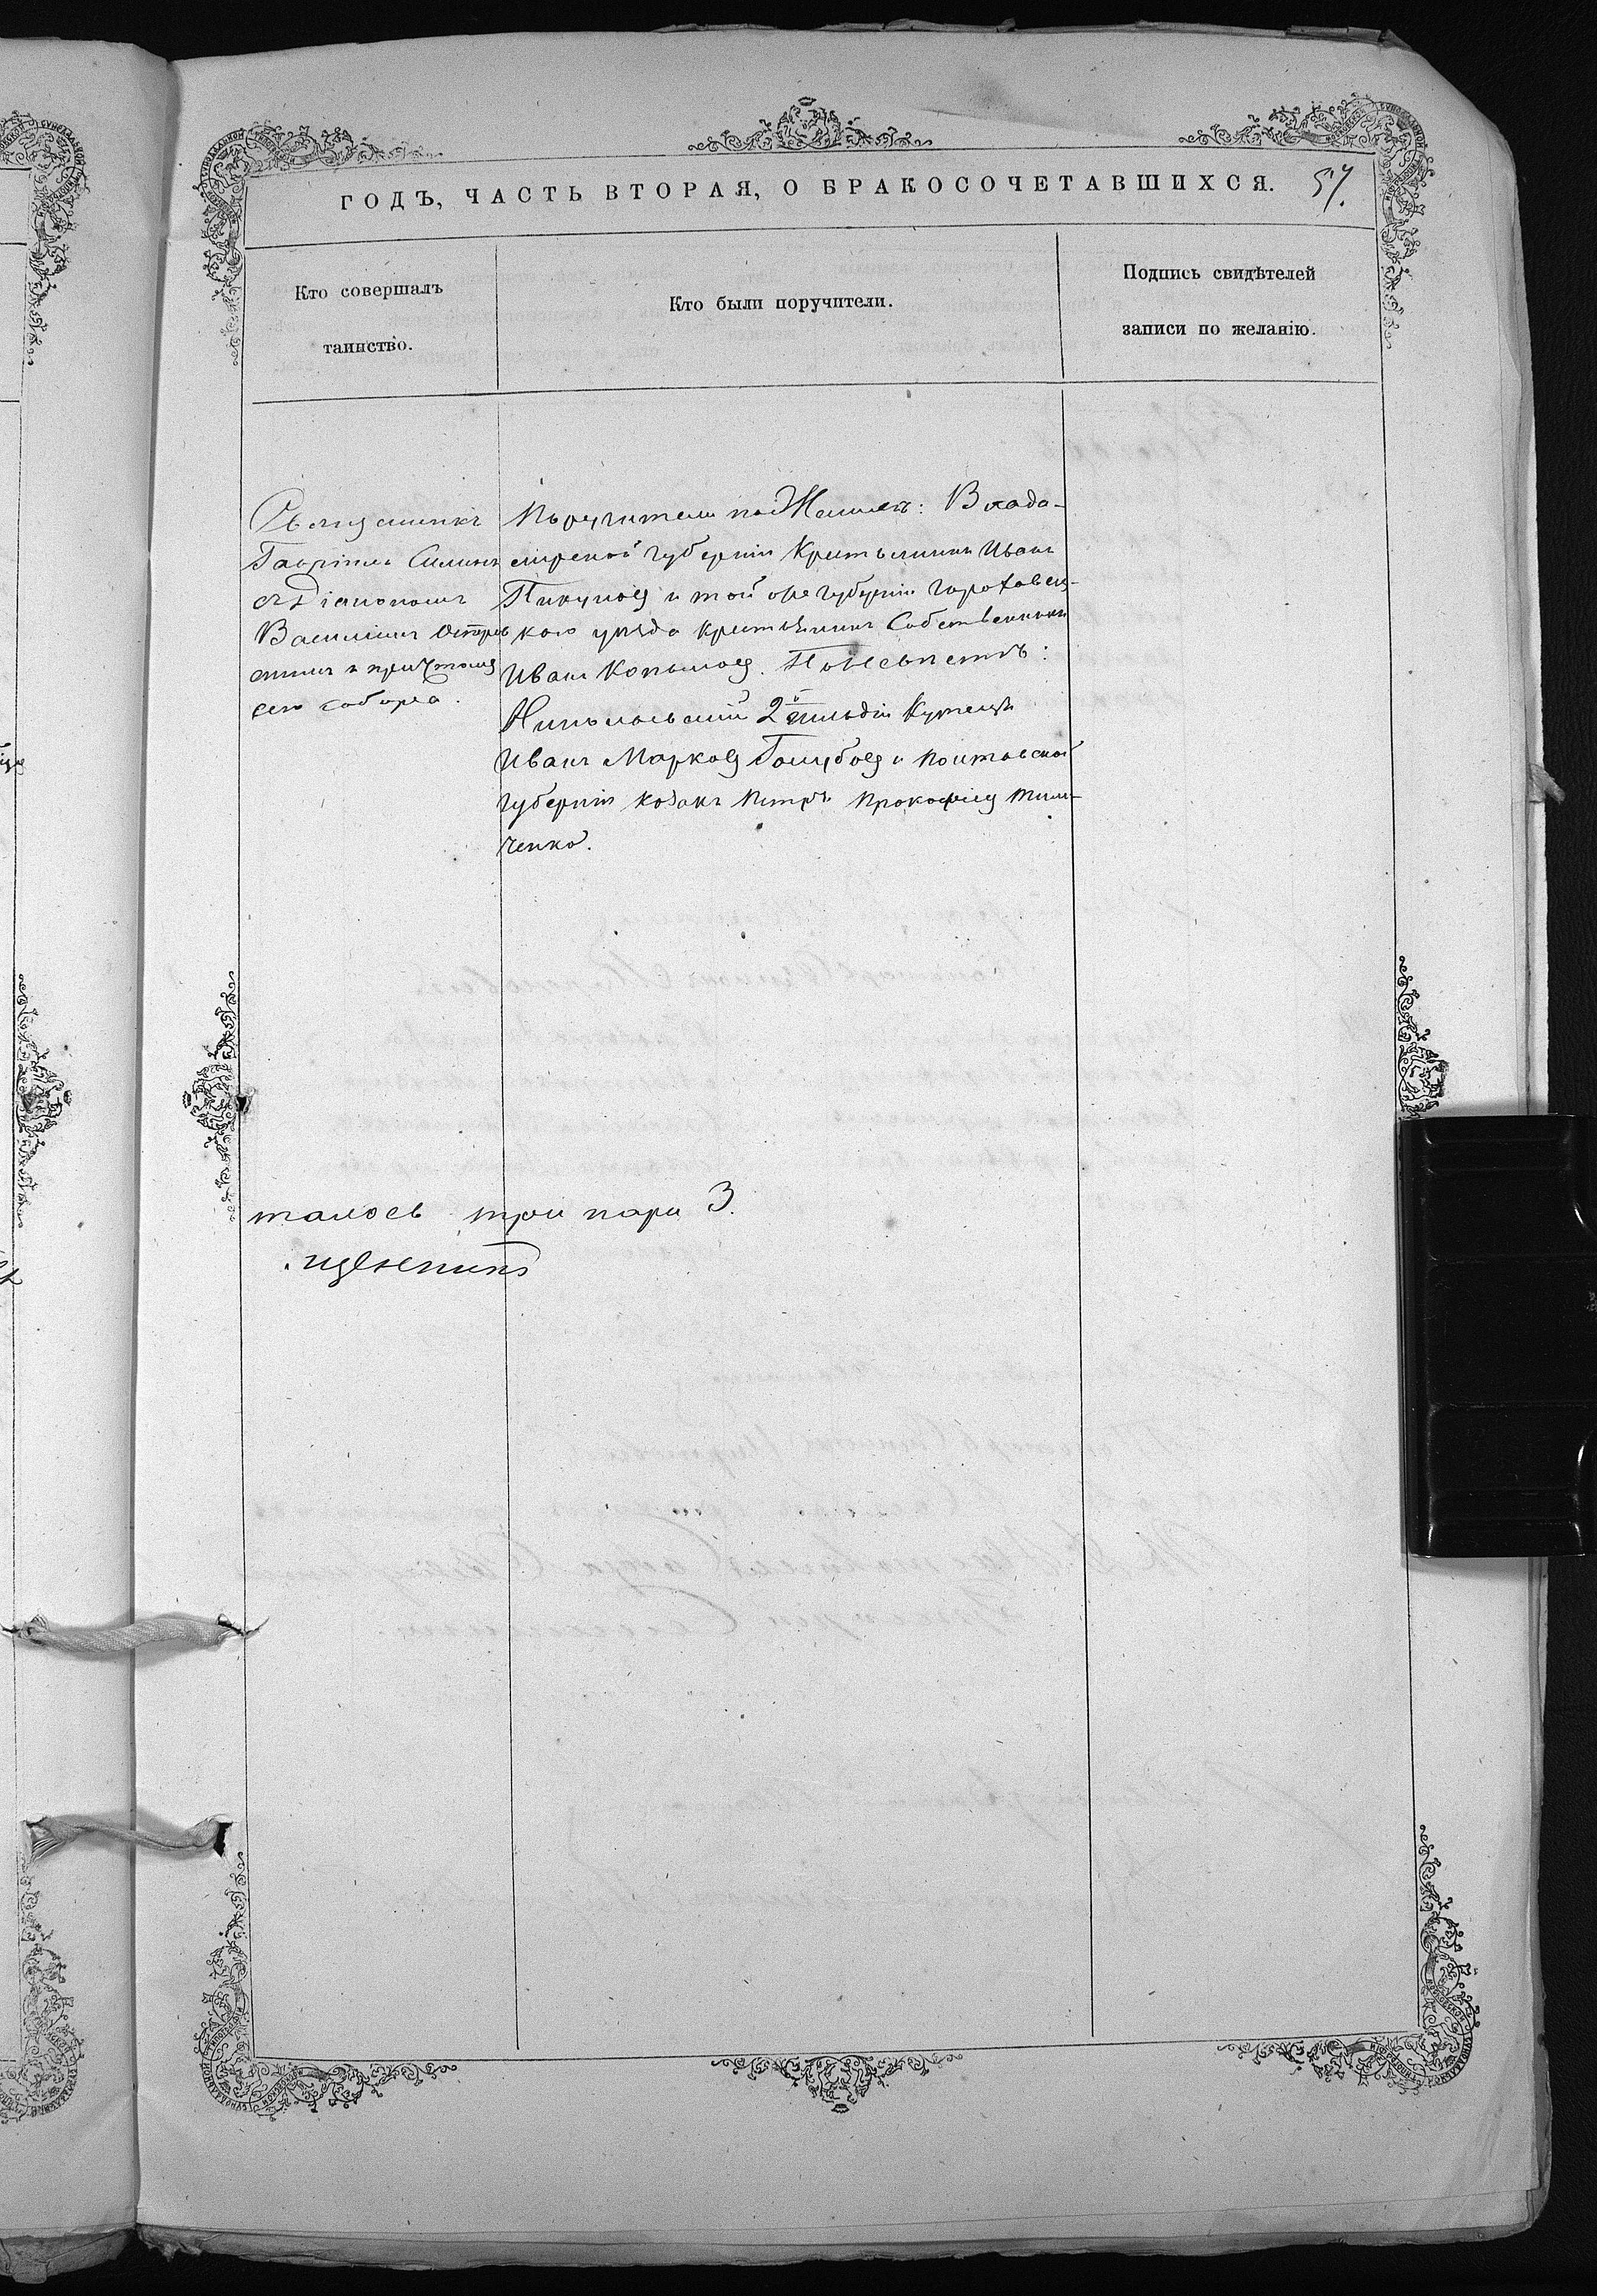 ГОДЪ, ЧАСТЬ ВТОРАЯ, О БРАКОСОЧЕТАВШИХСЯ. 57.
Кто совершалъ
таинство.
Кто были поручители.
Подпись свидѣтелей
записи по желанію.
Священникъ
Гавріилъ Силинъ
съ діакономъ
Василіемъ
и причтомъ
сего собора.
Поручители по Женихѣ: Влади-
мірской губерніи Крестьянинъ Иванъ
Пикуновъ и той же губерніи Гороховец-
каго уѣзда крестьянинъ Собственникъ
Иванъ Копыловъ. По Невѣстѣ:
Николаевскій 2й гильдіи Купецъ
Иванъ Марковъ Голубовъ и Полтавской
губерніи козакъ Петръ Прокофіевъ Тим-
ченко.
талось три пары 3.
щенникъ